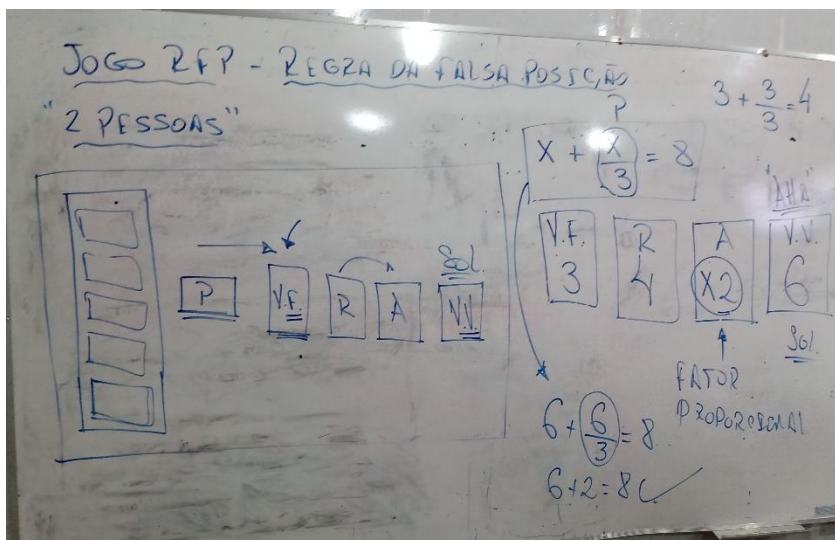 JOGO RFP - REGRA DA FALSA POSIÇÃO
"2 PESSOAS"
P
V.F.
R
A
SOL.
V.V.
3 + 3/3 = 4
P
X + X/3 = 8
"AHA"
V.F.
3
R
4
A
X2
V.V.
6
SOL.
FATOR
PROPORCIONAL
6 + 6/3 = 8
6+2=8 ✓